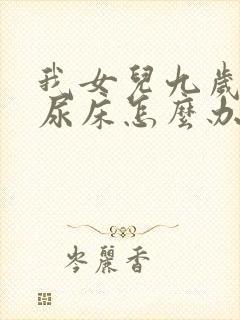 我女兒九歲
尿床怎麼办
岑麗香